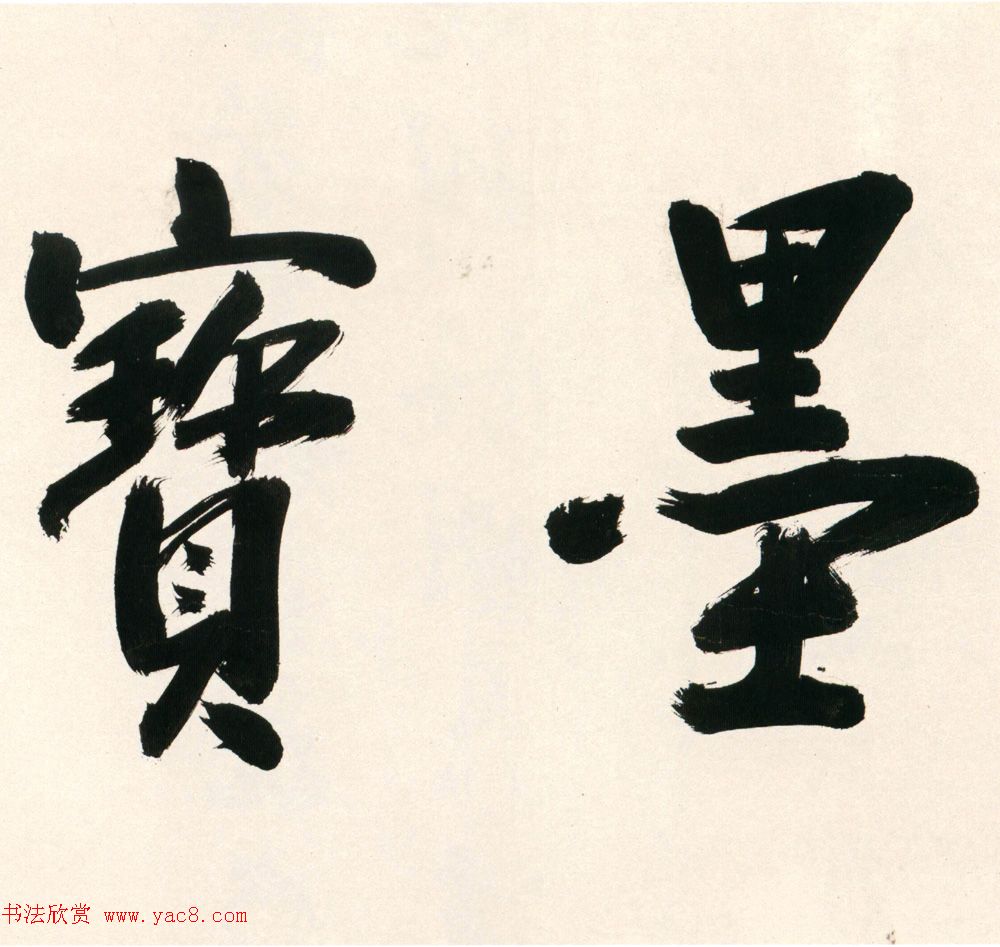 墨寶
书法欣赏 www.yac8.com